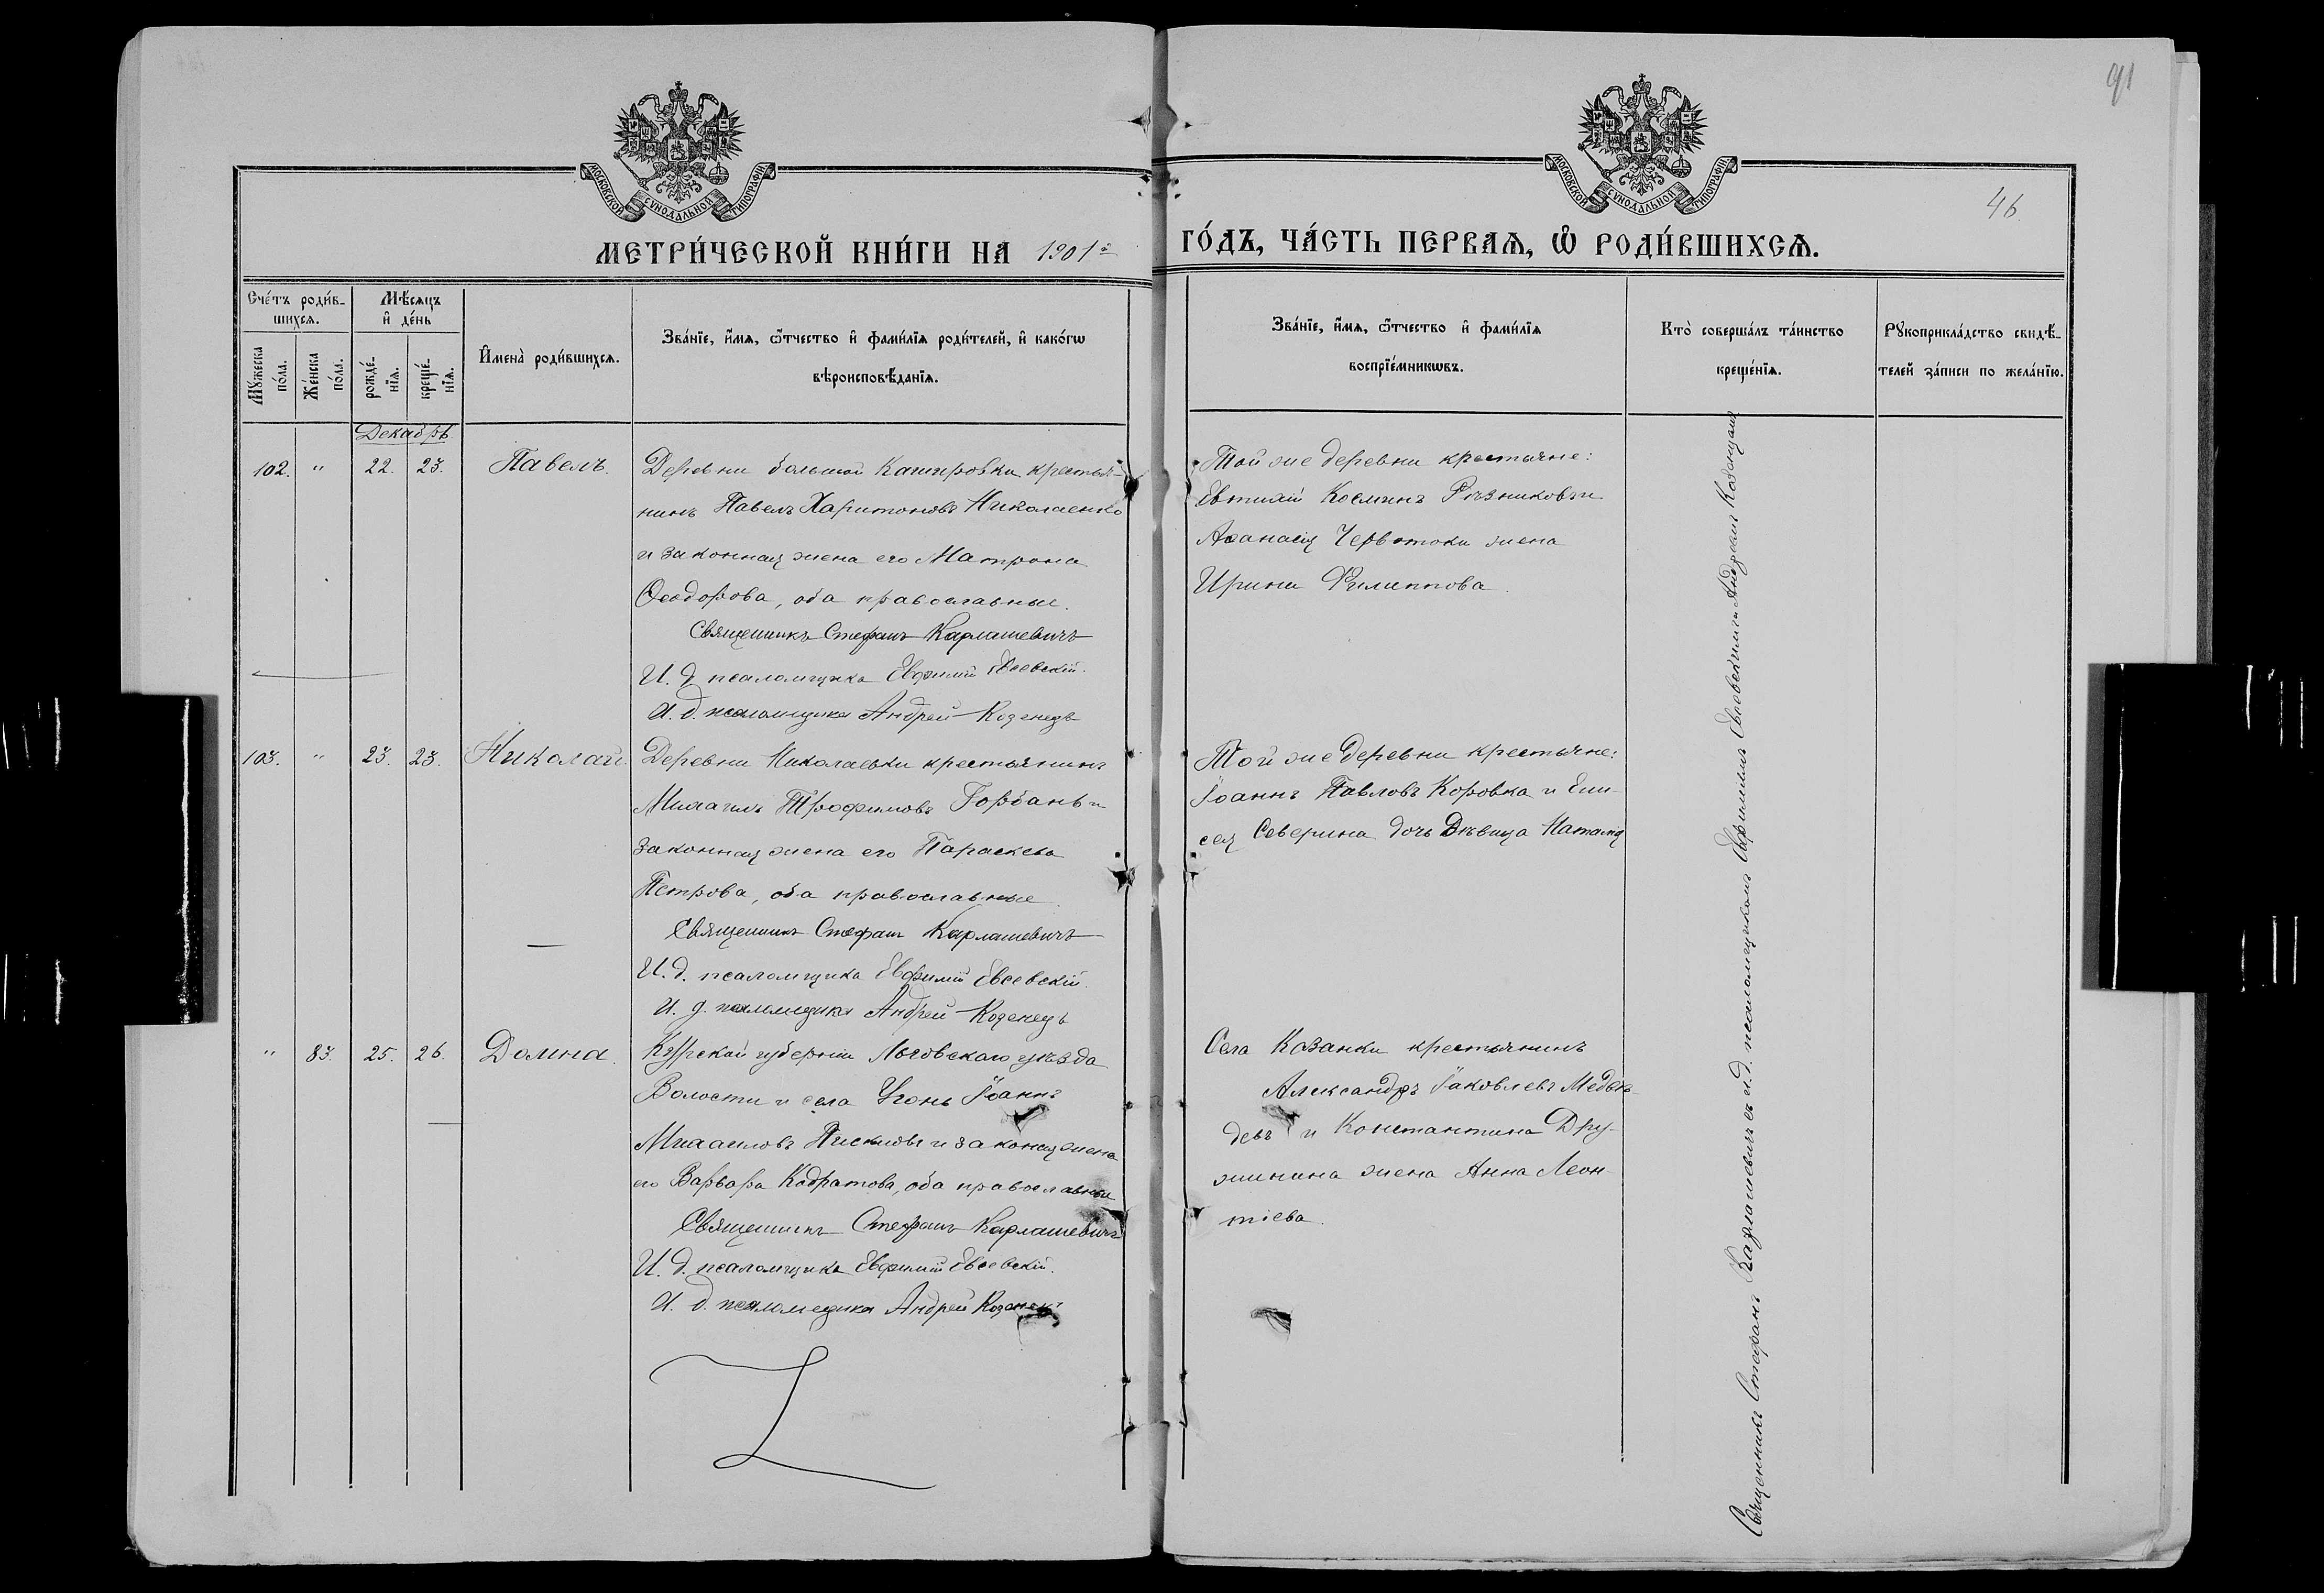 91
46.
МОСКОВСКОЙ СѴНОДАЛЬНОЙ ТИПОГРАФІИ.
МОСКОВСКОЙ СѴНОДАЛЬНОЙ ТИПОГРАФІИ.
МЕТРИ́ЧЕСКОЙ КНИ́ГИ НА 1901й
ГО́ДЪ, ЧА́СТЬ ПЕРВАЯ, Ѿ РОДИ́ВШИХСѦ.
Сче́тъ роди́в-
шихсѧ.
Мꙋ́жеска по́ла.
Же́нска по́ла.
Мѣ́сѧцъ
и҆ де́нь
рожде́-
нїѧ.
креще́-
нїѧ.
И҆мена̀ роди́вшихсѧ.
Зва́нїе, и҆́мѧ, ѻ҆́тчество и҆ фами́лїѧ роди́телей, и҆ како́гѡ
вѣроисповѣ́данїѧ.
Зва́нїе, и҆́мѧ, ѻ҆́тчество и҆ фами́лїѧ
воспрїе́мникѡвъ.
Кто̀ соверша́лъ та́инство
креще́нїѧ.
Рꙋкоприкла́дство свидѣ́-
телей за́писи по жела́нїю.
Декабрь
102. " 22. 23. Павелъ.
Деревни большой Кашировки крестья-
нинъ Павелъ Харитоновъ Николаенко
и законная жена его Матрона
Ѳеодорова, оба православные.
Священникъ Стефанъ Карлашевичъ
И. д. псаломщика Евфимій Евсевскій.
И. д. псаломщика Андрей Козенецъ
Той же деревни крестьяне:
Евтихій Косминъ Рѣзниковъ и
Аѳанасія Червотоки жена
Ирина Филиппова.
103. " 23. 23. Николай.
Деревни Николаевки крестьянинъ
Михаилъ Трофимовъ Горбань и
законная жена его Параскева
Петрова, оба православные
Священникъ Стефанъ Карлашевичъ
И. д. псаломщика Евфимій Евсевскій.
И. д. псаломщика Андрей Козенецъ
Той же деревни крестьяне:
Іоаннъ Павловъ Коровка и Ели-
сея Северина дочь Дѣвица Наталія
" 83. 25. 26. Домна.
Курской губерніи Льговскаго уѣзда
Волости и села Угонь Іоаннъ
Михаиловъ и законая жена
его Варвара Кодратова, оба православные
Священникъ Стефанъ Карлашевичъ
И. д. псаломщика Евфимій Евсевскій.
И. д. псаломщика Андрей Козенецъ
Села Казанки крестьянинъ
Александръ Іаковлевъ Медвѣ-
девъ и Константина Дру-
жинина жена Анна Леон-
тіева.
Священникъ Стефанъ Карлашевичъ съ и. д. псаломщикомъ Евфиміемъ Евсевскимъ и Андреемъ Козенцемъ